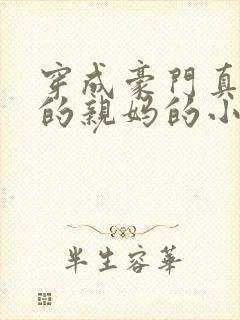 穿成豪門真
的親媽的小
半生容華